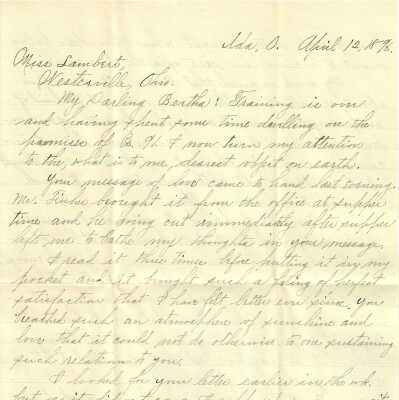 Ada, O. April 12, 18
Miss Lambert,
Westerville, Ohio.
My Darling Bertha: Training is over
and having spent some time dwelling on the
promises of B. I now turn my attention
to the, what is to me, dearest object on earth.
Your message of love came to hand last evening.
Mr. brought it from the office at supper
time and he going out immediately after supper
left me to bathe my thoughts in your message.
I read it three times before putting it in my
pocket and it brought such a feeling of perfect
satisfaction that I have felt better ever since. You
breathed such an atmosphere of sunshine and
love that it could not do otherwise to one sustaining
such relations to you.
I looked for your letter earlier in the wk.
but